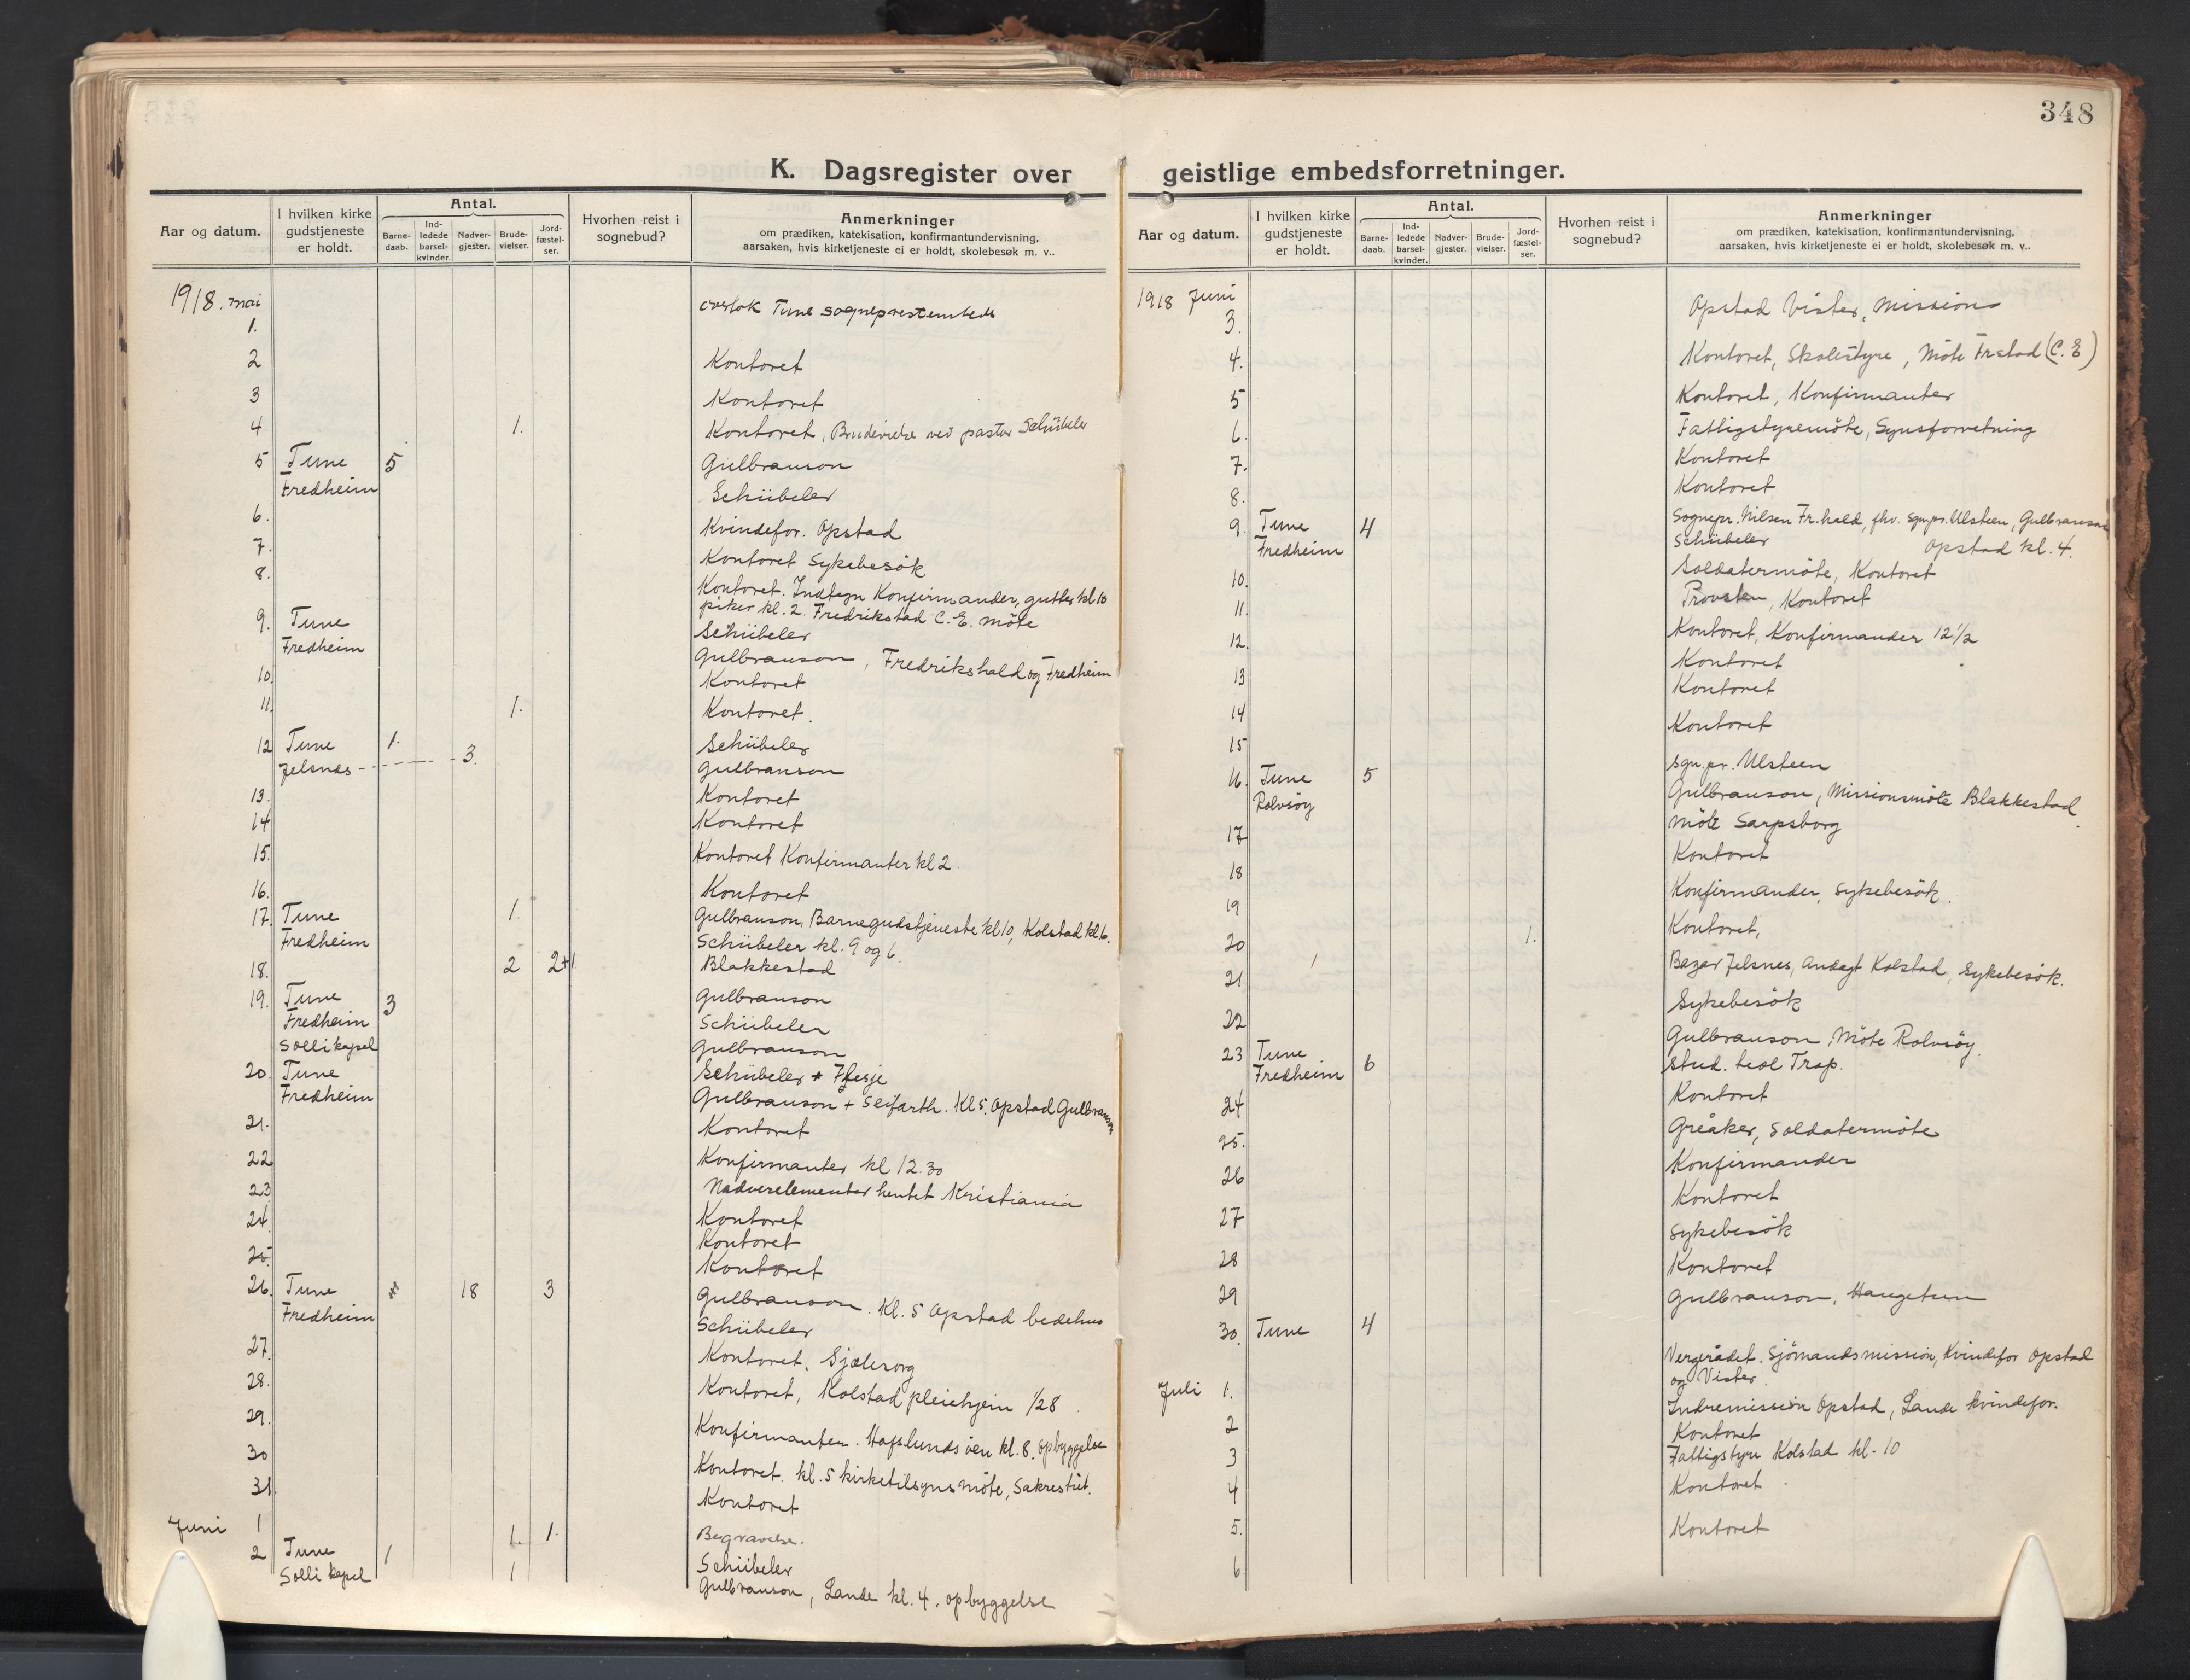 348
K. Dagsregister over geistlige embedsforretninger.
Aar og datum.
I hvilken kirke gudstjeneste er holdt.
Antal.
Barne-daab.
Ind-ledede barsel-kvinder.
Nadver-gjester.
Brude-vielser.
Jord-fæstel-ser.
Hvorhen reist i sognebud?
Anmerkninger
om prædiken, katekisation, konfirmantundervisning,
aarsaken, hvis kirketjeneste ei er holdt, skolebesøk m. v..
1918. mai
1. overtok Tune sogneprestembede
2 Kontoret
3 Kontoret
4 1. Kontoret, Brudevielse ved pastor Schübeler
5 Tune 5 Gulbranson
Fredheim Schübeler
6. Kvindefor. Opstad
7. Kontoret Sykebesök
8. Kontoret. Indtegn Konfirmander, gutter kl 10
piker kl. 2. Fredrikstad C. E. möte
9. Tune Schübeler
Fredheim Gulbranson, Fredrikshald og Fredheim
10. Kontoret
11. 1. Kontoret.
12 Tune 1. Schübeler
Jelsnes 3. Gulbranson
13. Kontoret
14 Kontoret
15. Kontoret Konfirmanter kl 2.
16. Kontoret
17. Tune 1. Gulbranson, Barnegudstjeneste kl 10, Kolstad kl 6.
Fredheim Schübeler kl. 9 og 6.
18. 2 2+1 Blakkestad
19. Tune 3 Gulbranson
Fredheim Schübeler
Solli kapel Gulbranson
20. Tune Schübeler +
Fredheim Gulbranson + Seifarth. Kl 5. Opstad Gulbranson
21. Kontoret
22 Konfirmanter kl 12.30
23 Nadverelementer hentet Kristiania
24. Kontoret
Kontoret
25. Kontoret
26. Tune 18 3 Gulbranson. Kl. 5 Opstad bedehus
Fredheim Schübeler
27. Kontoret. Sjælesorg
28. Kontoret, Kolstad pleiehjem 1/28
29. Konfirmanter. Hafslundsöen kl. 8. opbyggelse
30 Kontoret. kl. 5 kirketilsynsmöte, Sakrestiet.
31. Kontoret
Juni 1 1. 1. Begravelse.
2 Tune 1 Schübeler
Solli kapel 1 Gulbranson, Lande kl. 4. opbyggelse
Aar og datum.
I hvilken kirke gudstjeneste er holdt.
Antal.
Barne-daab.
Ind-ledede barsel-kvinder.
Nadver-gjester.
Brude-vielser.
Jord-fæstel-ser.
Hvorhen reist i sognebud?
Anmerkninger
om prædiken, katekisation, konfirmantundervisning,
aarsaken, hvis kirketjeneste ei er holdt, skolebesøk m. v..
1918 Juni
3. Opstad Vister, Mission
4. Kontoret, Skolestyre, Möte Frstad (C. E)
5 Kontoret, Konfirmanter
6. Fattigstyremöte, Synsforretning
7. Kontoret
8. Kontoret
9. Tune 4 Sognepr. Nilsen Fr.hald, fhv. sgn.pr. Ulsteen, Gulbranson
Fredheim Schübeler Opstad kl. 4.
10. Soldatermöte, Kontoret
11. Provsten, Kontoret
12. Kontoret, Konfirmander 12 1/2
13 Kontoret
14 Kontoret
15 Kontoret
16. Tune 5 sgn.pr. Ulsteen
Rolvsöy Gulbranson, Missionsmöte Blakkestad
17 möte Sarpsborg
18 Kontoret
19 Konfirmander, Sykebesök.
20 1. Kontoret,
21 Bazar Jelsnes, Andagt Kolstad, Sykebesök.
22 Sykebesök
23 Tune 6 Gulbranson, Möte Rolvsöy.
Fredheim stud. teol Trap.
24 Kontoret
25. Greåker, Soldatermöte
26 Konfirmander
27 Kontoret
28 Sykebesök
29 Kontoret
30. Tune 4 Gulbranson, Haugetun
Juli 1. Vergerådet. Sjömandsmission, Kvindefor Opstad
og Vister.
2 Indremission Opstad, Lande kvindefor.
Kontoret
3 Fattigstyre Kolstad kl. 10
4 Kontoret
5. Kontoret
6